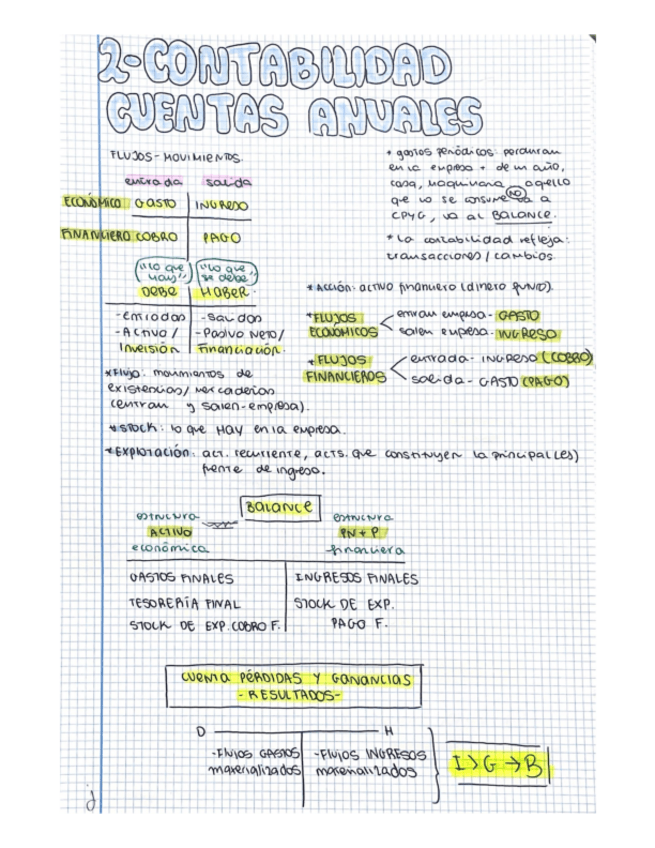 2-CONTABILIDAD
CUENTAS ANUALES
FLUJOS-MOVIMIENTOS.
entrada salida
ECONÓMICO GASTO INGRESO
FINANCIERO COBRO PAGO
("Lo que hay") ("Lo que se debe")
DEBE HABER
-Entradas -Salidas
-Activo/ -Pasivo Neto/
Inversión Financiación.
*Flujo: movimientos de
existencias/mercaderías
(entran y salen-empresa).
* gastos periódicos: perduran
en la empresa + de un año,
casa, maquinaria, aquello
que no se consume NO va a
CPYG, va al BALANCE.
* La contabilidad refleja:
transacciones/cambios.
*Acción: activo financiero (dinero fundo).
*FLUJOS ECONÓMICOS
entran empresa- GASTO
salen empresa- INGRESO
*FLUJOS FINANCIEROS
entrada- INGRESO (COBRO)
salida- GASTO (PAGO)
*STOCK: lo que HAY en la empresa.
*EXPLOTACIÓN: act. recurrente, acts. que constituyen la principal(es)
frente de ingreso.
BALANCE
estructura ACTIVO económica
estructura PN+P financiera
GASTOS FINALES INGRESOS FINALES
TESORERÍA FINAL STOCK DE EXP.
STOCK DE EXP. COBRO F. PAGO F.
CUENTA PÉRDIDAS Y GANANCIAS
-RESULTADOS-
D H
-Flujos GASTOS -Flujos INGRESOS
materializados materializados
I>G→B